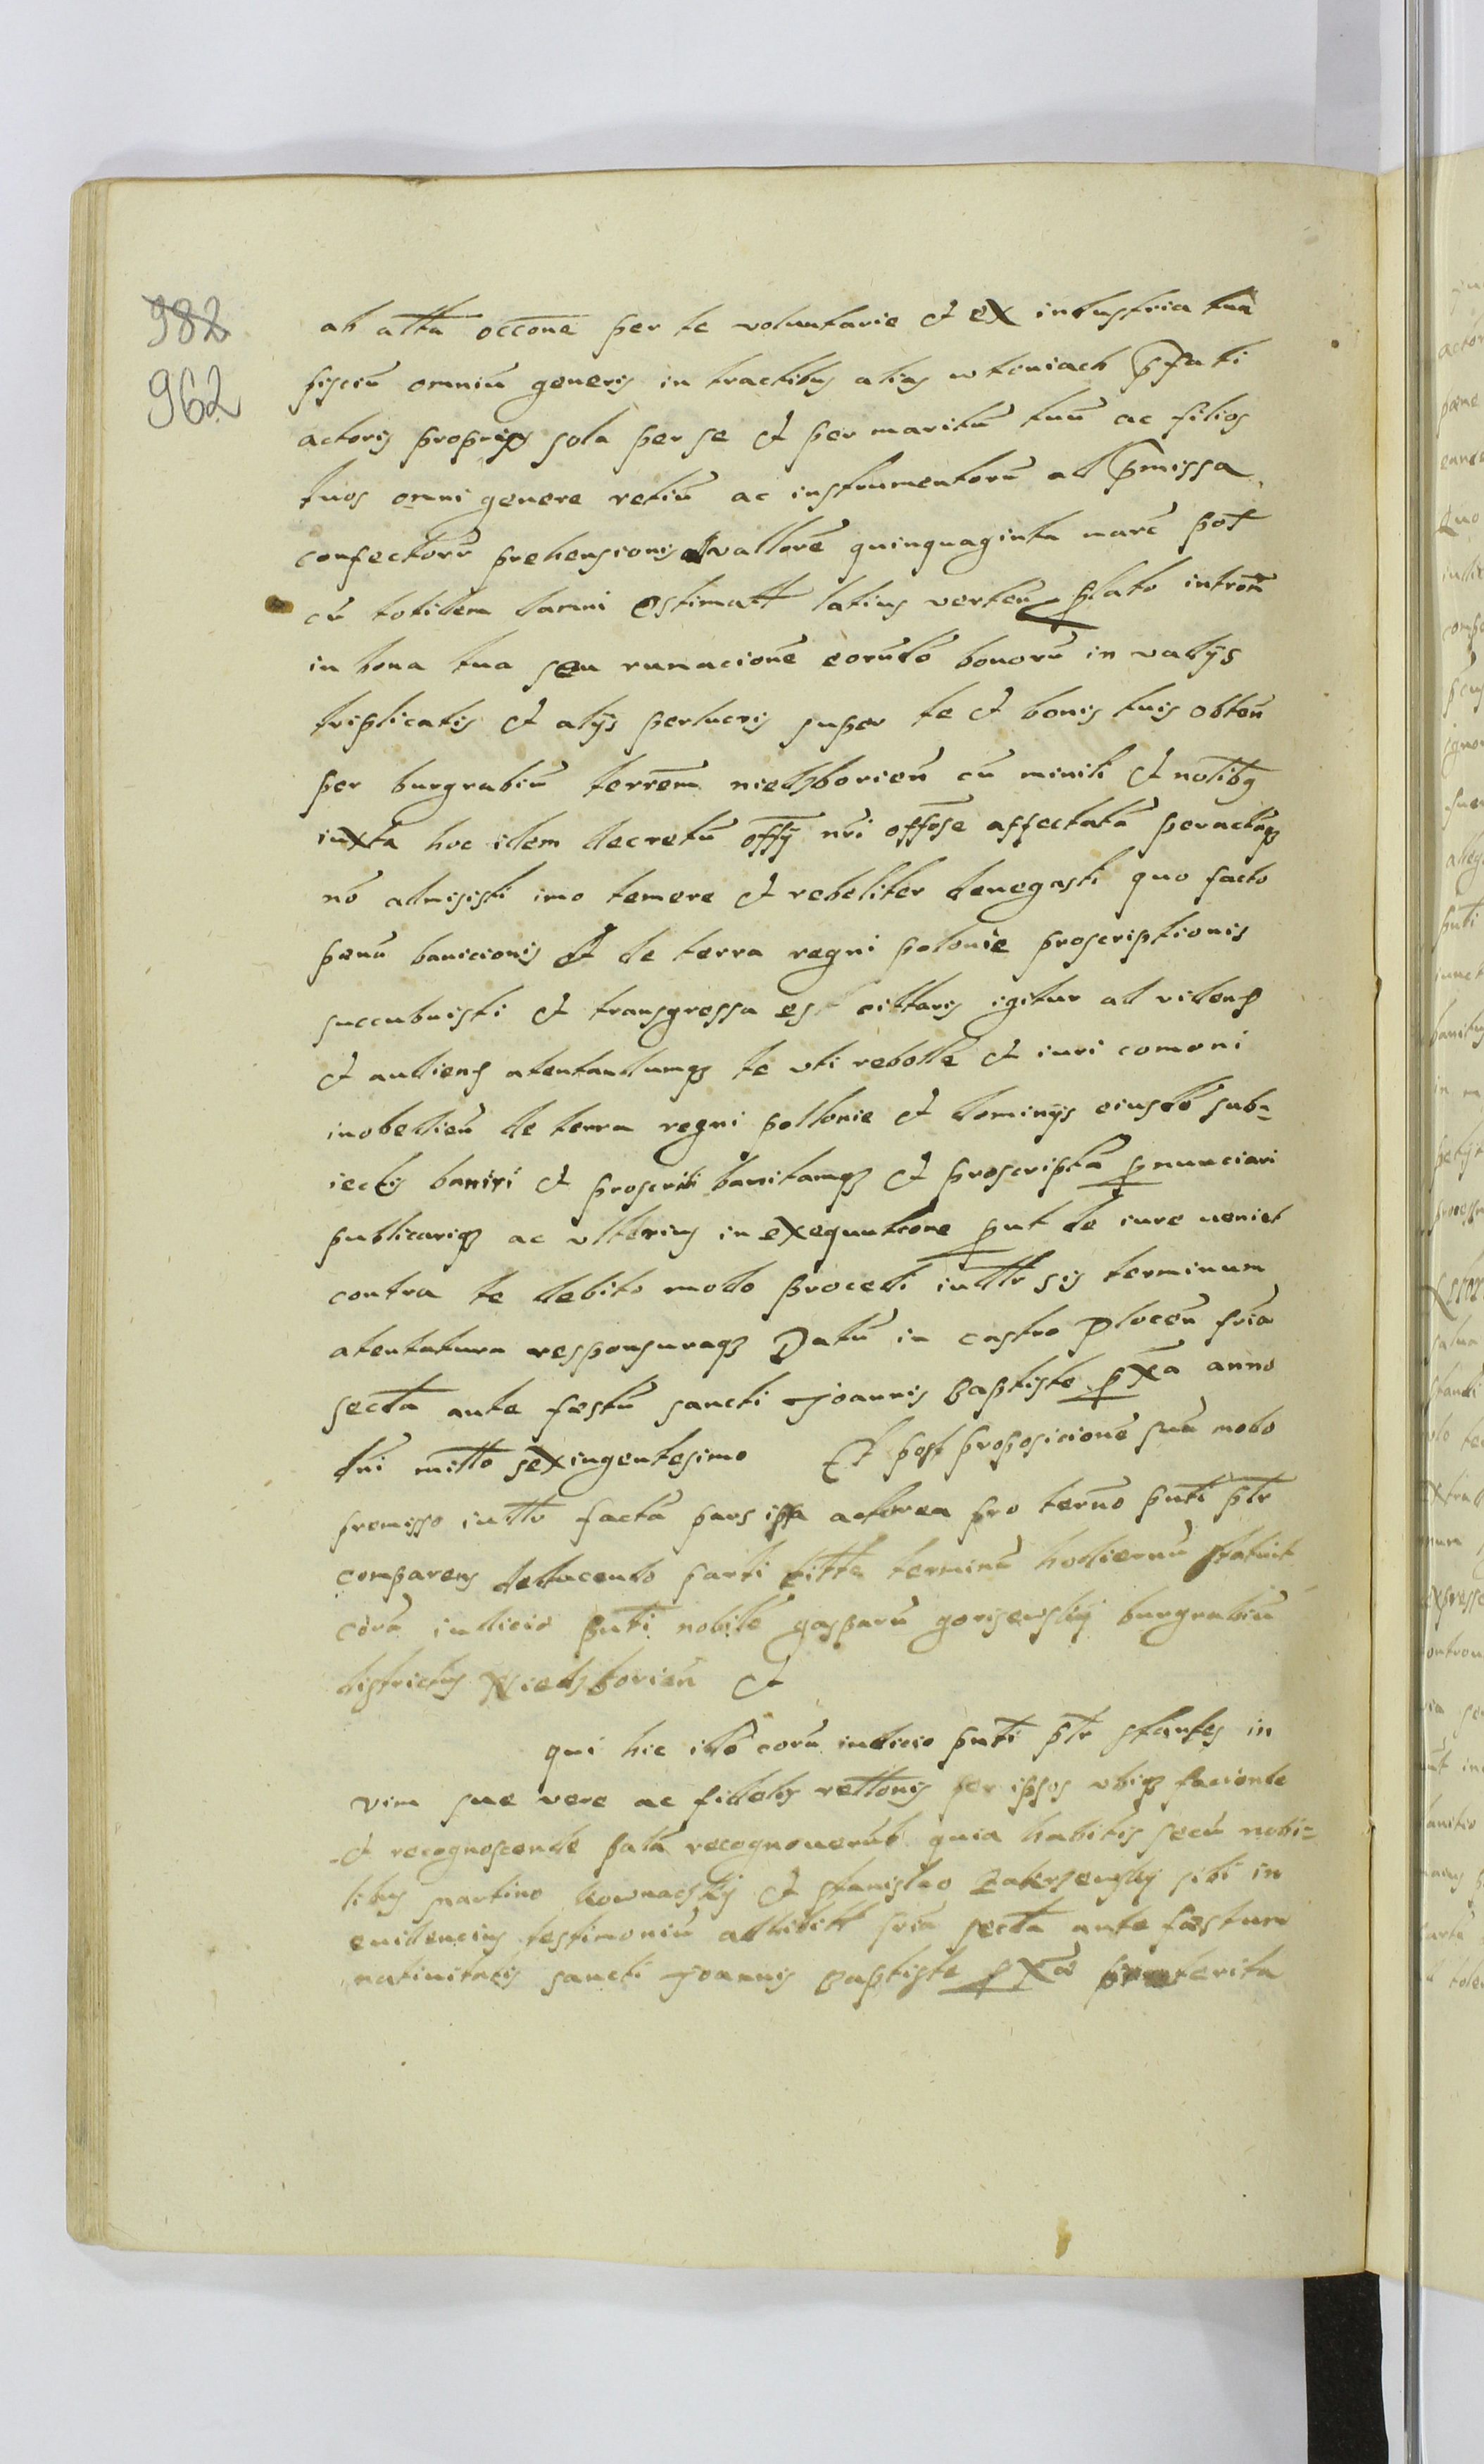 982
962
ab attu occõne per te voluntarie et ex industria tua
pisciũ omniũ generis in tractibus alias wtoniach p̃fati
actoris proprijs sola per se et per maritũ tuũ ac filios
tuos omni genere retiũ ac instrumentorũ ad p̃missa
confectorũ prehensionis vallorẽ quinquaginta marc̃ pot
cũ totidem damni estimatt latius verteñ p̱lato introm̃
in bona tua seu runacionẽ eorũdẽ bonorũ in vadijs
triplicatis et alijs perlucris super te et bonis tuis obteñ
per burgrabiũ terreñm niedzborieñ cũ minili et notibq
iuxta hoc idem decretũ offỹ nri offõse affectatã peractãqȝ
nõ admisisti imo temere et rebeliter denegasti quo facto
penã banicionis et de terra regni polonie proscriptionis
succubuisti et transgressa es cittaris igitur ad videnđ
et audienđ atentandumqȝ te vti rebelle et iuri comoni
inobedieñ de terra regni pollonie et dominijs eiusdẽ sub-
iectis baniri et proscribi banitamqȝ et proscriptã p̱nunciari
publicariqȝ ac vlterius in exequutcõne p̱ut de iure ueniet
contra te debito modo procedi iudltr sis terminum
atentatura responsuraqȝ Datũ in castro Ploceñ fria
sectã ante festũ sancti Joannis Baptiste p̱xa anno
dñi millo sexingentesimo Et post proposicionẽ suã modo
premisso iudltr factã pars ipsa actorea pro termo pñti pt̃r
comparens deducendo parti citte terminũ hodiernũ statuit
corã iudicio pñti nobile gasparũ gorisewskij burgrabiũ
districtus Niedzborieñ et
qui hic ibidẽ corã iudicio pñti pt̃r stantes in
vim sue vere ac fidelis rellonis per ipsos vbiqȝ faciende
et recognoscende palã recognouerũt quia habitis secũ nobi-
libus martino kownaczkij et stanislao zakrzewskij sibi in
euidencius testimoniũ adhibitt fria secta ante festum
natiuitatis sancti Joannis Baptiste p̱xa preterita